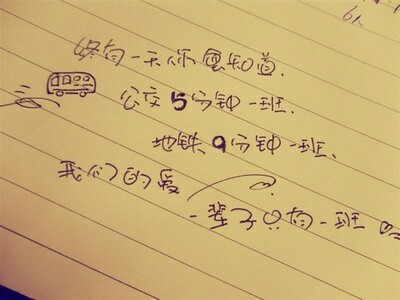 终有一天你会知道.
公交5分钟一班
地铁9分钟一班.
我们的爱
一辈子只有一班